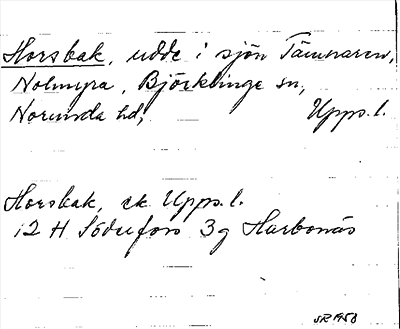 Horsbak, udde i sjön Tämnaren,
Nolmyra, Björklinge sn,
Norunda hd, Upps. l.
Horsbak, ek. Upps. l.
12 H Söderfors 3 g Harbonäs
SR 1958